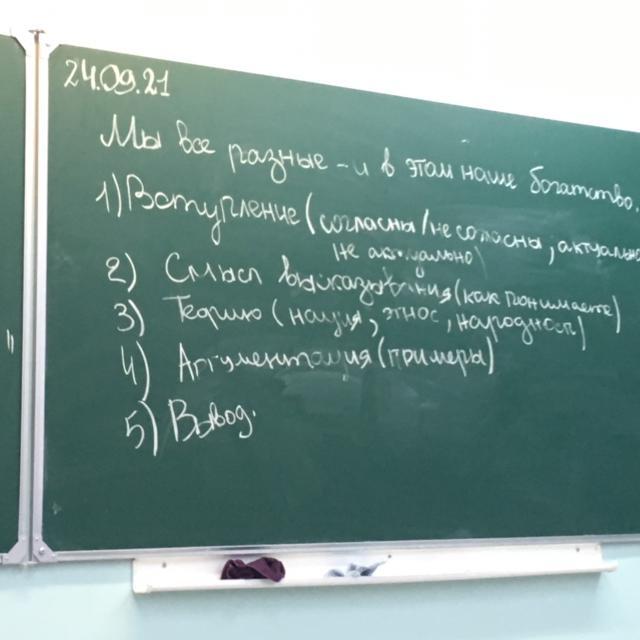 24.09.21
Мы все разные - и в этом наше богатство.
1) Вступление (согласны/не согласны, актуально
не актуально)
2) Смысл высказывания (как понимаете)
3) Теорию (нация, этнос, народность)
4) Аргументация (примеры)
5) Вывод.
"